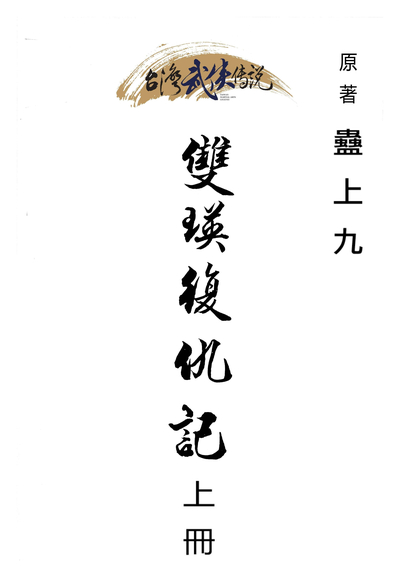 台灣武俠傳說
原著 蠱上九
雙瑛復仇記
上冊